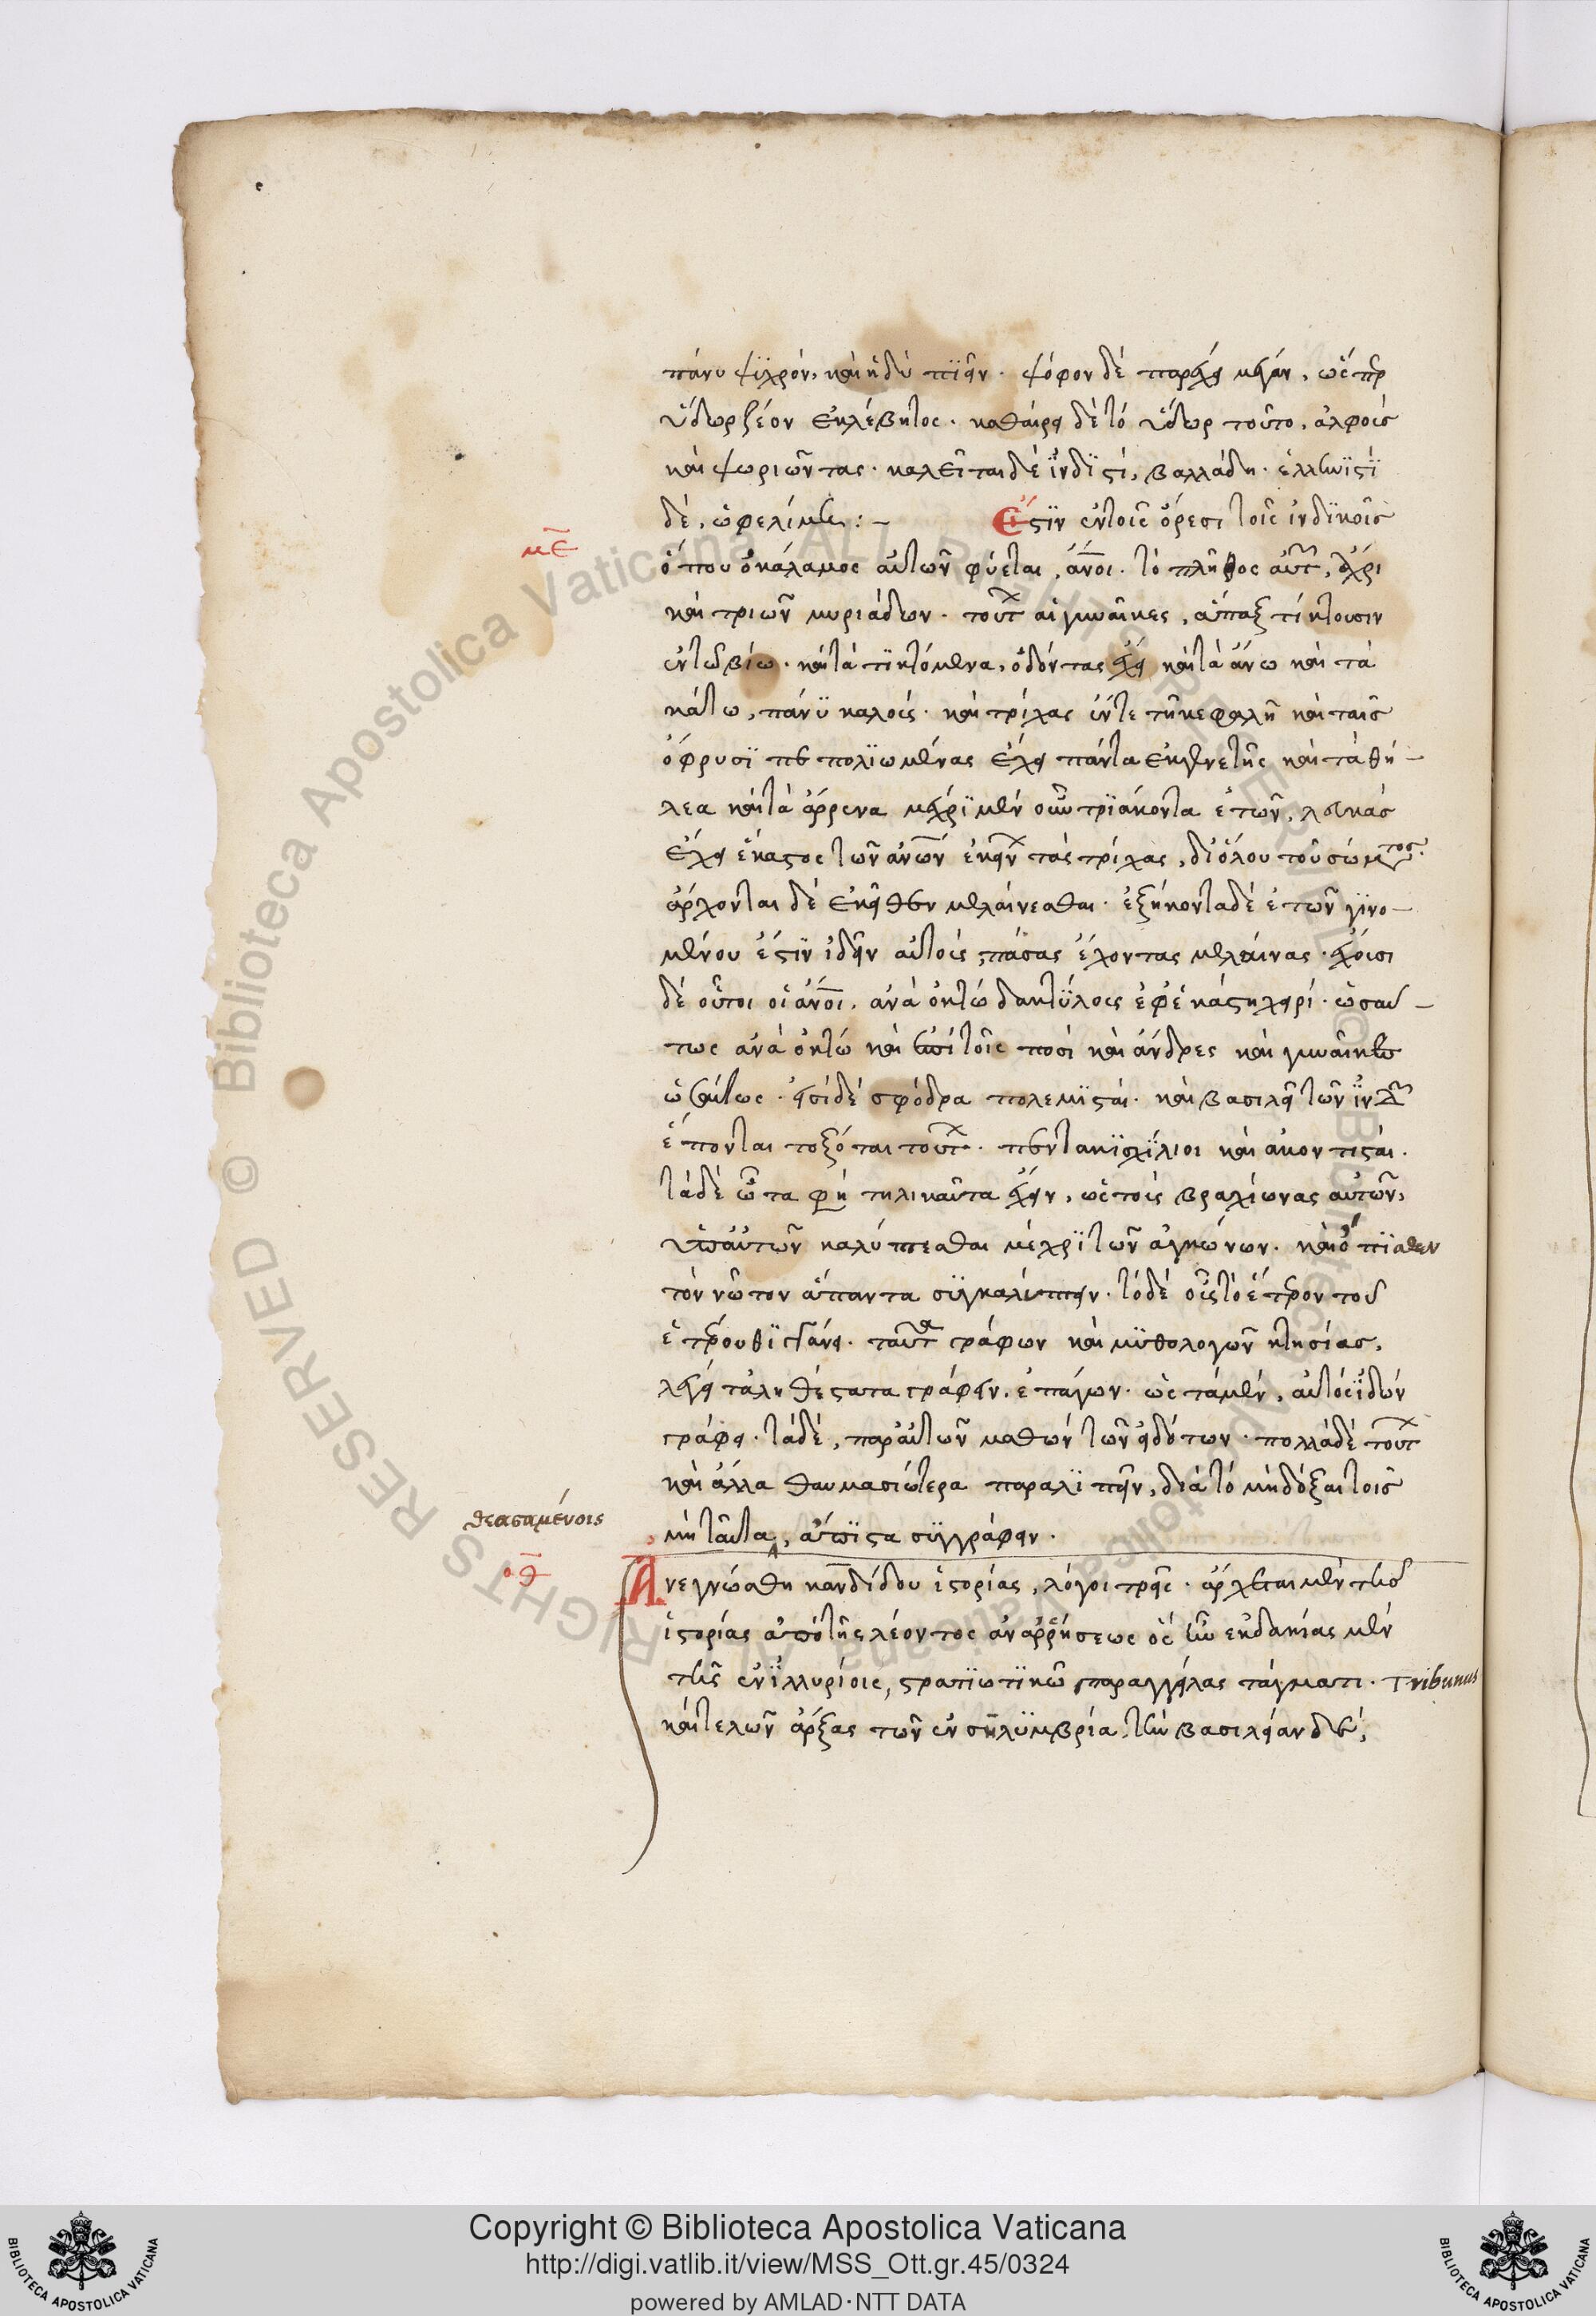 πάνυ ψϋχρόν, καὶ ἡδὺ πϊεῖν. ψόφον δὲ παρέχει μέγαν, ὥσπερ
ὕδωρ ζέον ἐκ λέβητος. καθαίρει δὲ τὸ ὕδωρ τοῦτο, ἀλφοὺς
καὶ ψωριῶντας. καλεῖται δὲ ἰνδϊστί, βαλλάδη. ἑλληνϊστϊ
δὲ, ὠφελίμη :–	Εἰσῒν ἐν τοῖς ὄρεσι τοῖς ἰνδϊκοῖς
με
ὅπου ὁ κάλαμος αὐτῶν φύεται, ἄνοι. τὸ πλῆθος αὐτ, ἄχρι
καὶ τριῶν μυριάδων. τούτ αἱ γυναῖκες, ἅπαξ τίκτουσιν
ἐν τῶ βίω. καὶ τὰ τϊκτόμενα, ὀδόντας ἔχει καὶ τὰ ἄνω καὶ τὰ
κάτω, πάνϋ καλούς. καὶ τρίχας ἔν τε τῆ κεφαλῆ καὶ ταῖς
ὀφρυσϊ πεπολϊωμένας ἔχει πάντα ἐκ γενετῆς καὶ τὰ θή–
λεα καὶ τὰ ἄρρενα μέχρϊ μὲν οὖν τρϊάκοντα ἐτῶν, λευκὰς
ἔχει ἕκαστος τῶν ἀνῶν ἐκείν τὰς τρίχας, δι' ὅλου τοῦ σώματος.
ἄρχονται δὲ ἐκεῖθεν μελαίνεσθαι. ἑξήκοντα δὲ ἐτῶν γϊνο–
μένου ἔστϊν ἰδεῖν αὐτοὺς, πάσας ἔχοντας μελαίνας. ἔχουσι
δὲ οὗτοι οἱ ἄνοι. ἀνὰ ὀκτὼ δακτϋλους ἐφ' ἑκάστη χειρί. ὡσαύ–
τως ἀνὰ ὀκτὼ καὶ ἐπὶ τοῖς ποσὶ καὶ ἄνδρες καὶ γυναῖκες
ὡσαύτως. εἰσὶ δὲ σφόδρα πολεμϊσταί. καὶ βασιλεῖ τῶν ἰνδ
ἕπονται τοξόται τούτ. πεντακϊσχϊλιοι καὶ ἀκοντισταί.
τὰ δὲ ὦτα φὴ τηλικαῦτα ἔχειν, ὡς τοὺς βραχίωνας αὐτῶν,
ὑπ' αὐτῶν καλύπτεσθαι μέχρϊ τῶν ἀγκώνων. καὶ ὄπϊσθεν
τὸν νῶτον ἅπαντα σϋγκαλύπτειν. τὸ δὲ οὖς τὸ ἕτερον τοῦ
ἑτέρου θϊγγάνει. ταῦτα γράφων καὶ μϋθολογῶν κτησίας,
λέγει τἀληθέστατα γράφειν. ἐπάγων. ὡς τὰ μὲν, αὐτὸς ἰδὼν
γράφει. τὰ δὲ, παρ' αὐτῶν μαθὼν τῶν εἰδότων. πολλὰ δὲ τούτ
καὶ ἄλλα θαυμασιώτερα παραλϊπεῖν, διὰ τὸ μὴ δόξαι τοῖς
θεασαμένοις
μὴ ταῦτα, ἄπϊστα σϋγγράφειν.
οθ
Ἀνεγνώσθη κανδίδου ἱστορίας, λόγοι τρεῖς. ἄρχεται μὲν τῆς
ἱστορίας ἀπὸ τῆς λέοντος ἀναρρήσεως ὃς ἦν ἐκ δακίας μὲν
τῆς ἐν ἰλλυρίοις, στρατϊωτϊκῶ παραγγείλας τάγματι. Tribunus
καὶ τελῶν ἄρξας τῶν ἐν σηλϋμβρία, τὴν βασιλείαν δὲ,
Copyright © Biblioteca Apostolica Vaticana
http://digi.vatlib.it/view/MSS_Ott.gr.45/0324
powered by AMLAD·NTT DATA